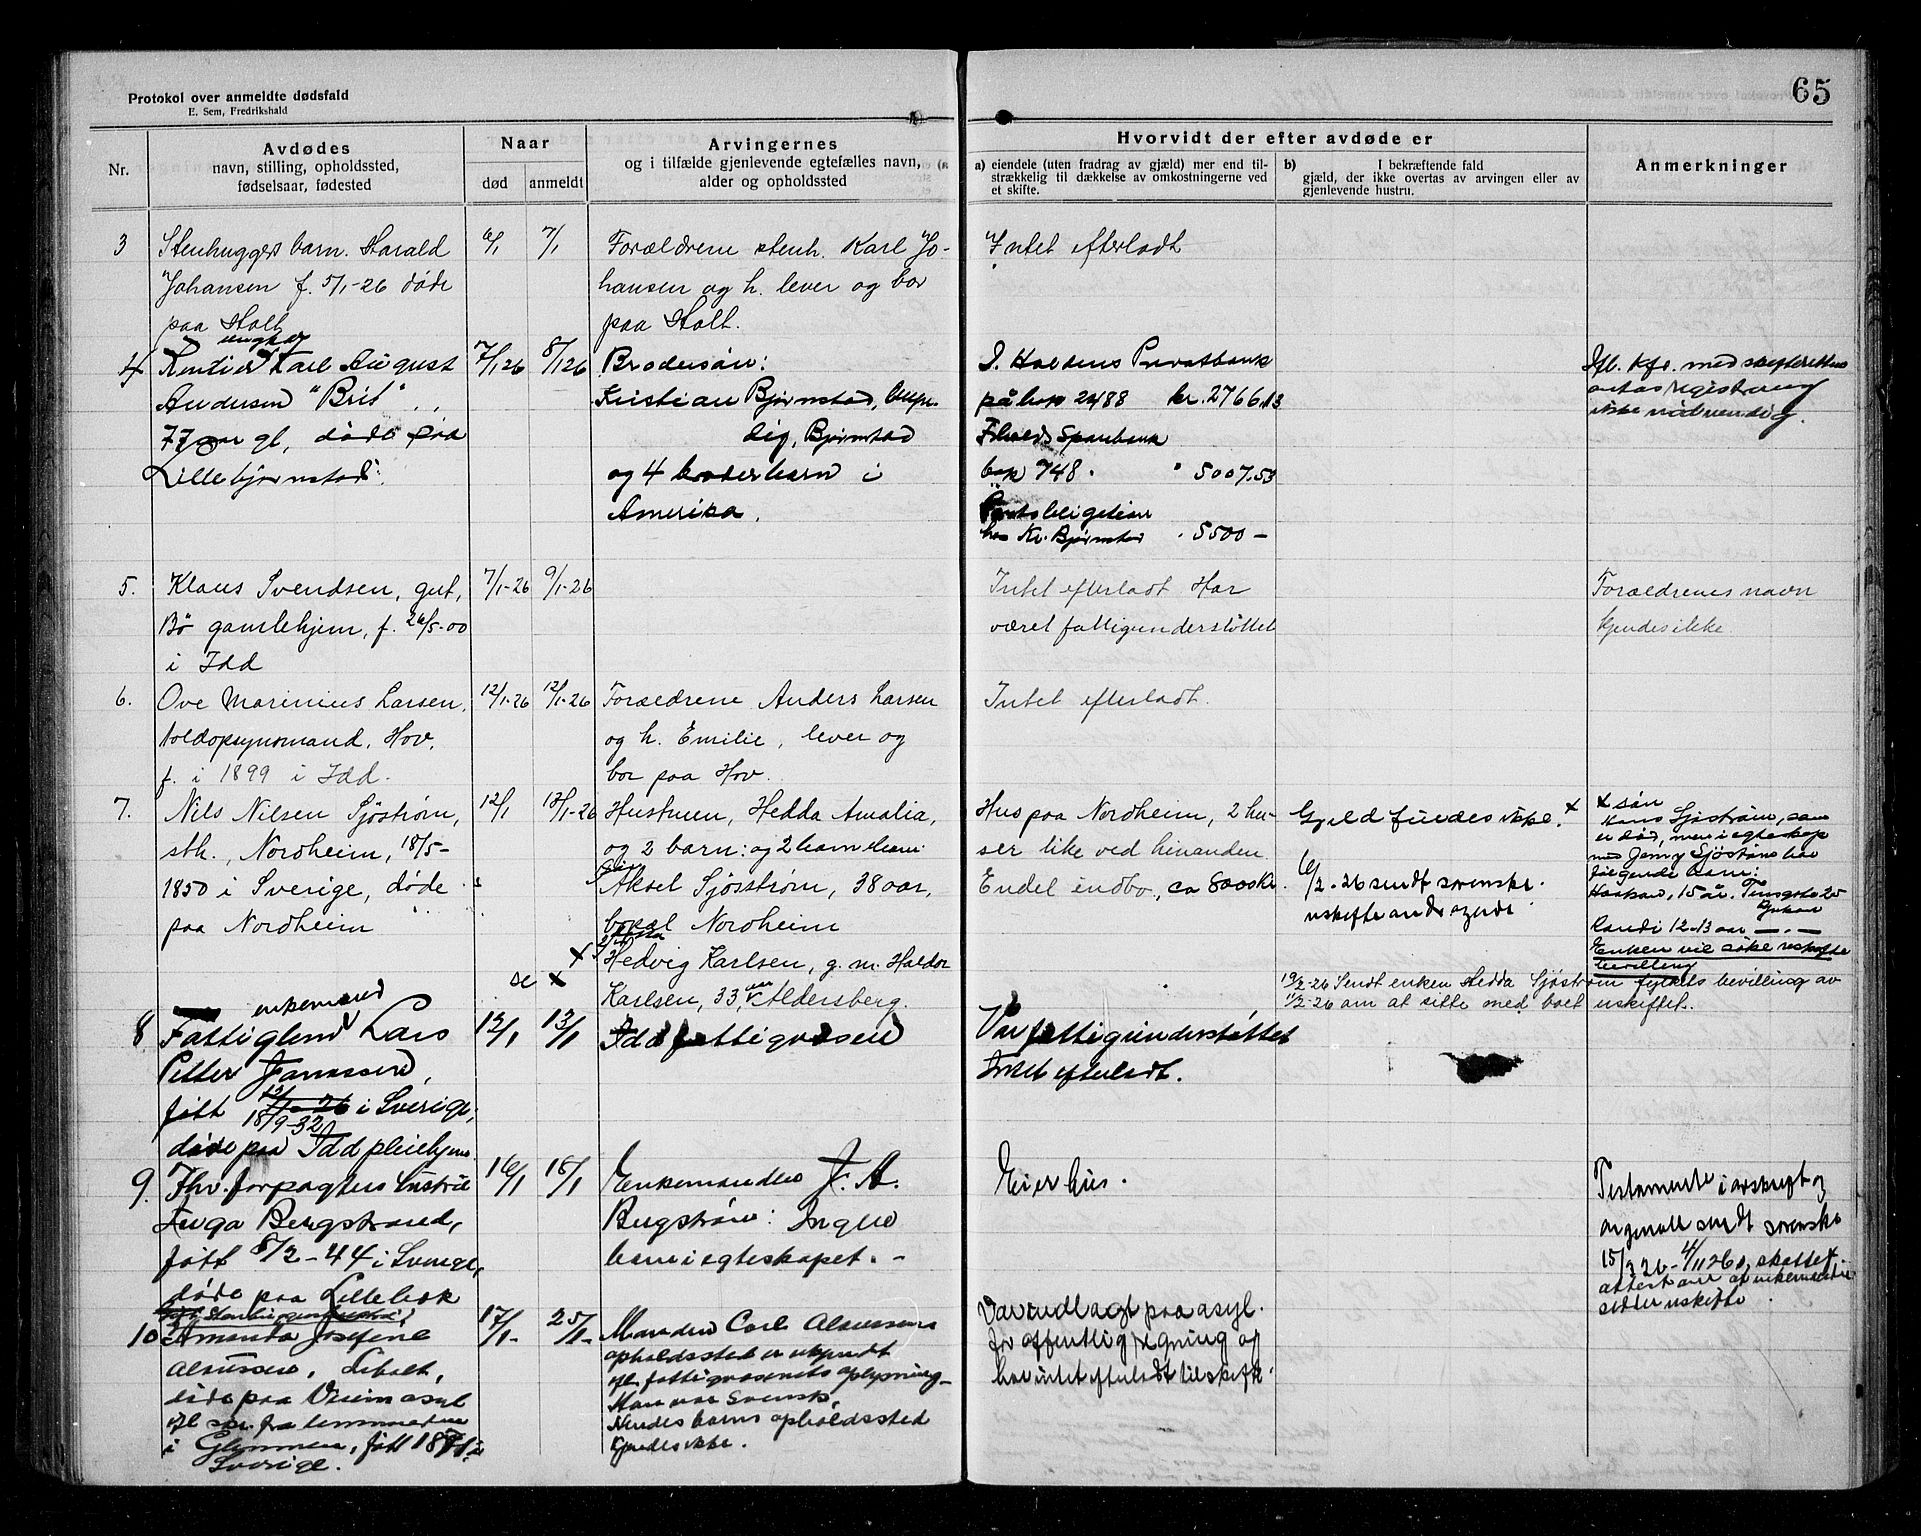 65
Protokol over anmeldte dødsfald
E. Sem, Fredrikshald
Nr.
Avdødes
navn, stilling, opholdssted,
fødselsaar, fødested
Naar
død
anmeldt
Arvingernes
og i tilfælde gjenlevende egtefælles navn,
alder og opholdssted
Hvorvidt der efter avdøde er
a) eiendele (uten fradrag av gjæld) mer end til-
strækkelig til dækkelse av omkostningerne ved
et skifte.
b) I bekræftende fald
gjæld, der ikke overtas av arvingen eller av
gjenlevende hustru.
Anmerkninger
3
Stenhuggers barn. Harald
Johansen f. 5/1-26 døde
paa Holt
6/1
7/1
Forældrene stenh. Karl Jo-
hansen og h. lever og bor
paa Holt.
Intet efterladt
4
ungkar
Rentier Karl August
Andersen "Brit"
77 aar gl, døde paa
Lillebjørnstad.
7/1 26
8/1 26
Brodersøn:
Kristian Bjørnstad,
Bjørnstad
og 4 broderbarn i
Amerika.
I. Haldens Privatbank
på bok 2488 kr. 2766.13
Fhalds Sparebank
bok 748. " 5007.53
Pantobligation
hos Kr. Bjørnstad " 5500 –
Ifl. kfr. med skifteretten
antas registrering
ikke nødvendig.
5.
Klaus Svendsen, gut,
Bø gamlehjem, f. 26/5-00
i Idd
7/1-26
9/1-26
Intet efterladt Har
været fattigunderstøttet
Forældrenes navn
kjendes ikke.
6.
Ove Marinius Larsen,
toldopsynsmand, Hov,
f. i 1899 i Idd.
12/1-26
12/1-26
Forældrene Anders Larsen
og h. Emilie, lever og
bor paa Hov.
Intet efterladt.
7.
Nils Nilsen Sjøstrøm,
sth., Nordheim, 18/5-
1850 i Sverige, døde
paa Nordheim
12/1
13/1-26
Hustruen, Hedda Amalia,
og 2 barn: og 2 barnebarn:
Aksel Sjøsstrøm, 38 aar,
bopæl Nordheim
Hedvig Karlsen, g. m. Haldor
Karlsen, 33 aar, Aldersberg.
se x
Hus paa Nordheim, 2 hu-
ser like ved hinanden.
Endel indbo, ca 800 kr.
Gjeld findes ikke. x
6/2-26 sendt sorenskr.
uskifteandragende.
x søn
Hans Sjöström, som
er død, men i egteskap
med Jenny Sjöström har
følgende barn:
Haakon, 15 år. Tingsgt. 25
Rjukan
Randi 12-13 aar — " —
Enken vil søke uskifte
bevilling
19/2-26 Sendt enken Hedda Sjøstrøm fylkets bevilling av
11/2-26 om at sitte med boet uskiftet.
8
enkemand
Fattiglem Lars
Petter Jonassen,
født 12/1-26 i Sverige,
18/9-32
døde paa Idd pleiehjem
12/1
13/1
Idd fattigvæsen
Var fattigunderstøttet
Intet efterladt.
9.
Fhv. forpagters hustru
Inga Bergstrand,
født 8/2-44 i Sverige,
døde paa Lillebæk
16/1
18/1
Enkemanden J. A.
Bergstrøm: Ingen
barn i egteskapet. –
Eier hus.
Testamente i avskrift og
original sendt sorenskr.
15/3 26 – 4/11 26 skattet,
attest om at enkemanden
sidder uskifte.
10
Amanda Josefine
Alsussen, Liholt,
døde paa Veum asyl
ifl. skr. fra lensmanden
i Glemmen, født 1871 i
Sverige.
17/1-
25/1-
Manden Carl Alsussen
opholdssted er ukjendt
ifl. fattigvæsenets oplysning –
Man var svensk.
Hendes barns opholdssted
kjendes ikke.
Var indlagt paa asyl
for offentlig regning og
har intet efterladt til skifte.